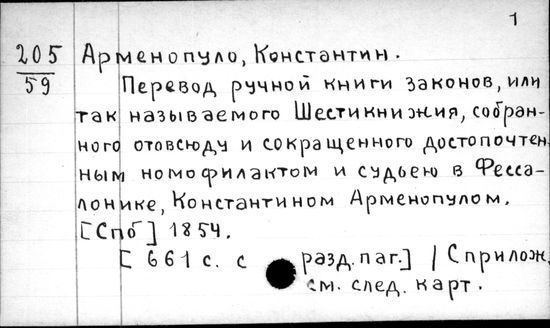 1
205
59
Арменопуло, Константин.
Перевод ручной книги законов, или
так называемого Шестикнижия, собран-
ного отовсюду и сокращенного достопочтен
ным номофилактом и судьею в Фесса-
лонике, Константином Арменопулом.
[Спб] 1854.
[661 с. с разд. паг.] / С прилож.
см. след. карт.